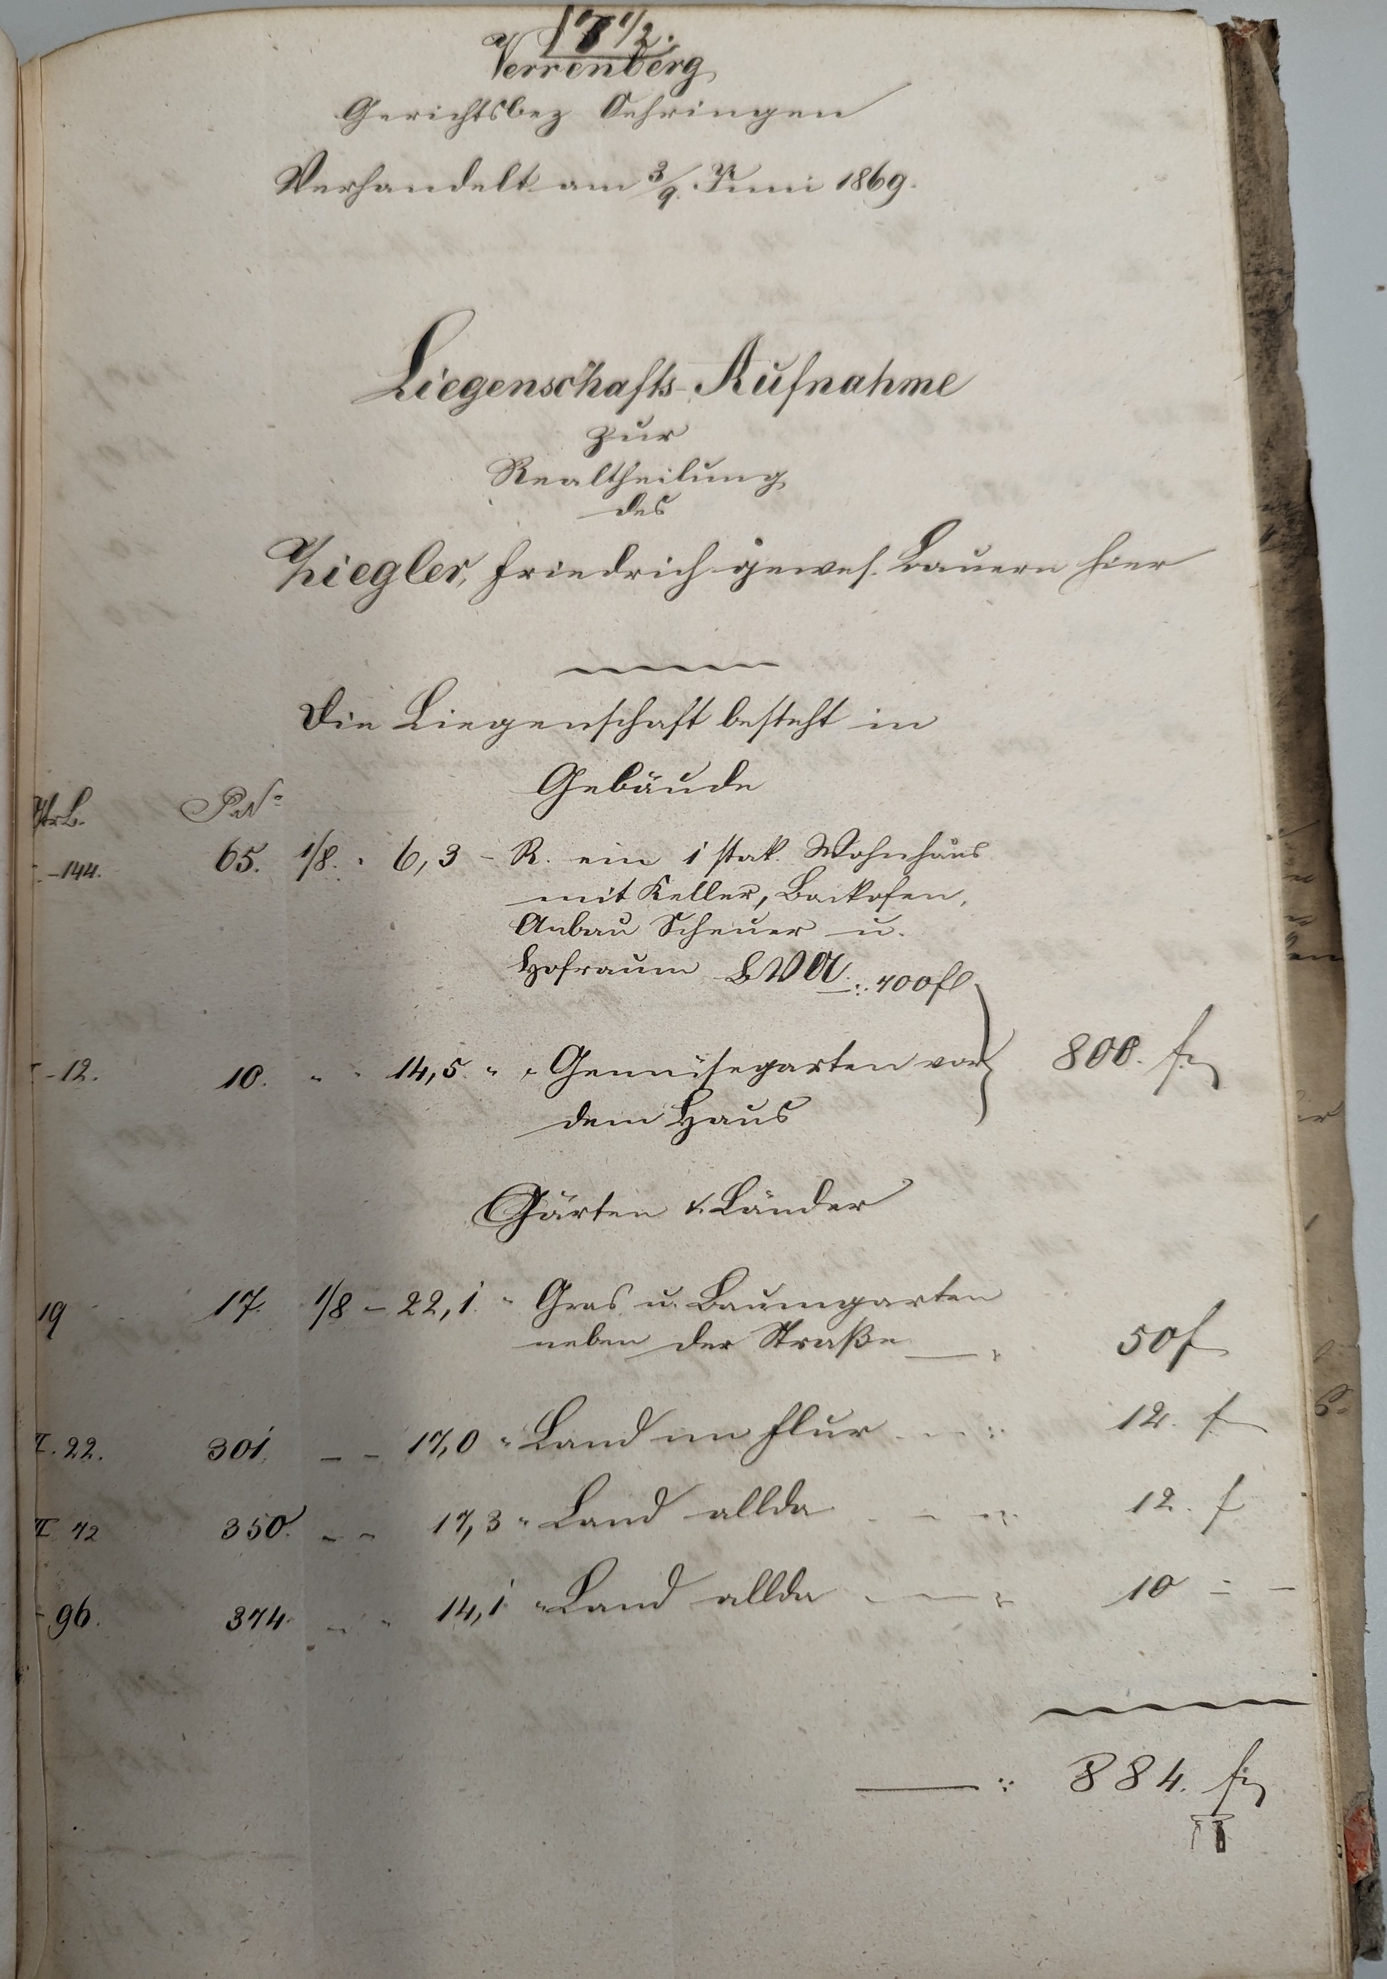 § 7 1/2.
Verrenberg
Gerichtsbez Oehringen
Verhandelt am 3/9. Juni 1869.
Liegenschafts-Aufnahme
zur
Realtheilung
des
Ziegler, Friedrich gewes. Bauern hier
Die Liegenschaft besteht in
Gebäude
GrB. P.N°
-144. 65. 1/8. " 6,3 - R. ein 1 stok. Wohnhaus
mit Keller, Backofen,
Anbau Scheuer u.
Hofraum BVA.: 700fl
-12. 10. " " 14,5. " " Gemüsegarten vor 800. f
dem Haus
Gärten & Länder
19 17. 1/8 - 22,1. " Gras u. Baumgarten
neben der Straße 50f
II. 22. 301. - - 17,0 " Land im Flur 12. f
II 72 350. - - 17,3 " Land allda 12. f
-96. 374. - - 14,1 " Land allda 10 - -
884. f